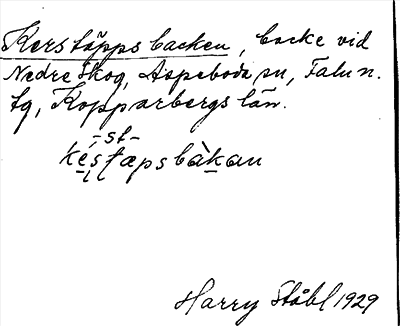 Kerstäppsbacken, backe vid
Nedre Skog, Aspeboda sn, Falu n.
tg, Kopparbergs län.
-st-
kèstæpsbàkan
Harry Ståhl 1929